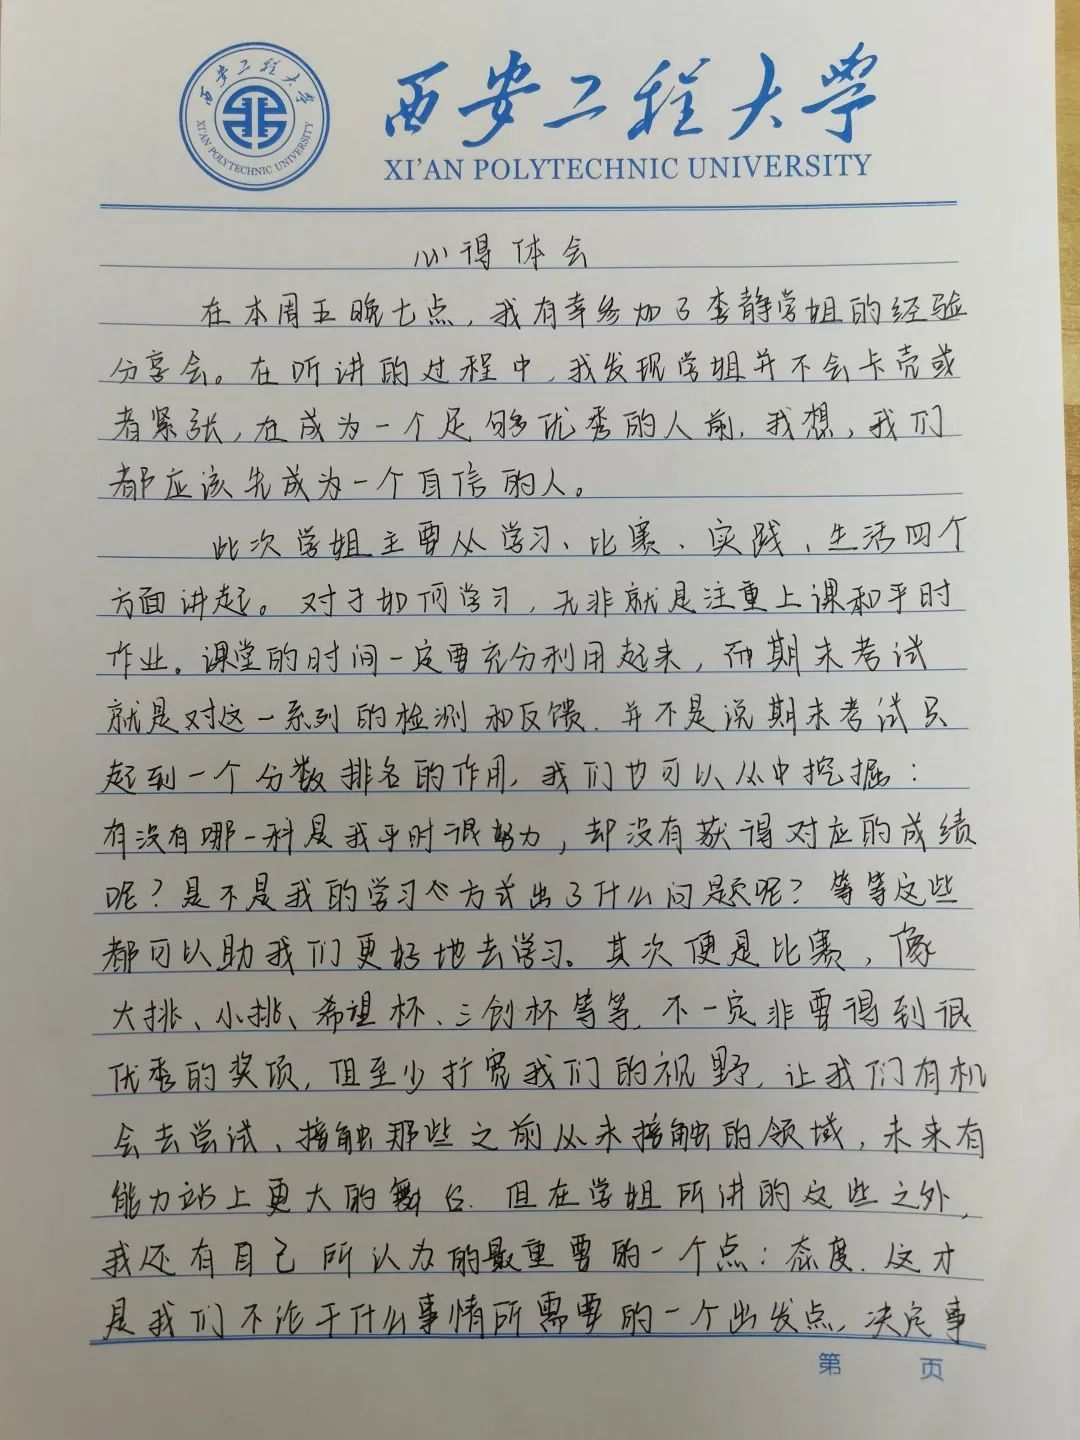 西安工程大学
XI'AN POLYTECHNIC UNIVERSITY
西安工程大学
XI'AN POLYTECHNIC UNIVERSITY
心得体会
在本周五晚七点，我有幸参加了李静学姐的经验
分享会。在听讲的过程中，我发现学姐并不会卡壳或
者紧张，在成为一个足够优秀的人前，我想，我们
都应该先成为一个自信的人。
此次学姐主要从学习、比赛、实践、生活四个
方面讲起。对于如何学习，无非就是注重上课和平时
作业。课堂的时间一定要充分利用起来，而期末考试
就是对这一系列的检测和反馈．并不是说期末考试只
起到一个分数排名的作用，我们也可以从中挖掘：
有没有哪一科是我平时很努力，却没有获得对应的成绩
呢？是不是我的学习方式出了什么问题呢？等等这些
都可以助我们更好地去学习。其次便是比赛，像
大挑、小挑、希望杯、三创杯等等．不一定非要得到很
优秀的奖项，但至少拧宽我们的视野，让我们有机
会去尝试、接触那些之前从未接触的领域，未来有
能力站上更大的舞台．但在学姐所讲的这些之外，
我还有自己所认为的最重要的一个点：态度．这才
是我们不论干什么事情所需要的一个出发点，决定事
第 页